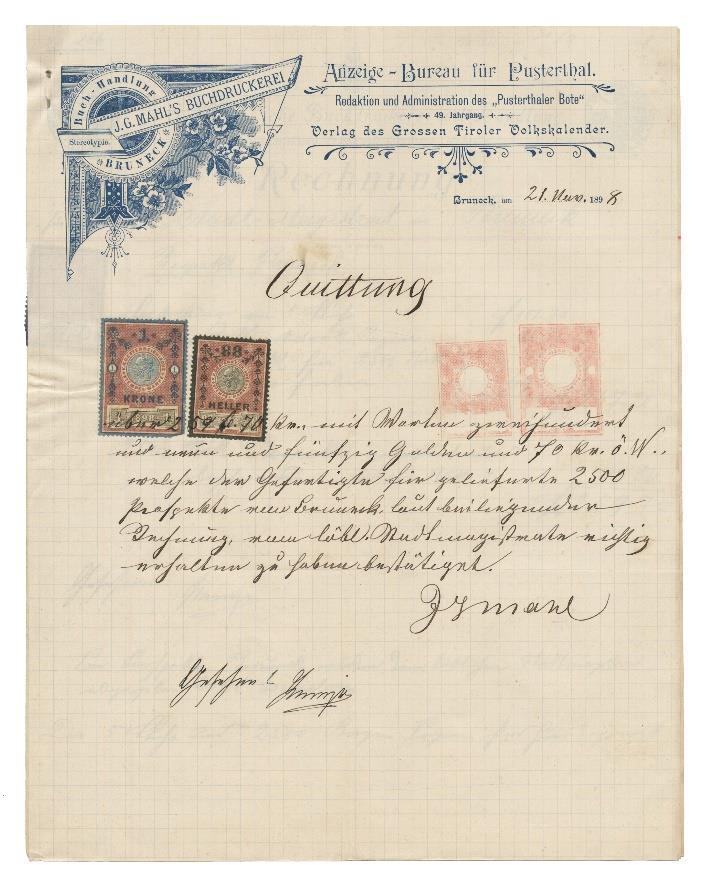 Buch-Handlung
J. G. MAHL'S BUCHDRUCKEREI
Stereotypie.
BRUNECK
Anzeige-Bureau für Pusterthal.
Redaktion und Administration des „Pusterthaler Bote“
49. Jahrgang.
Verlag des Grossen Tiroler Volkskalender.
Bruneck, am 21. Nov. 1898
Quittung
1
KRONE
1898
88
HELLER
über 259 fl. 70 kr., mit Worten zweihundert
und neun und fünfzig Gulden und 70 kr. ö. W.,
welche der Gefertigte für gelieferte 2500
Prospekte von Bruneck, laut beiliegender
Rechnung, vom löbl. Stadtmagistrate richtig
erhalten zu haben bestätiget.
JG Mahl
Gesehen: